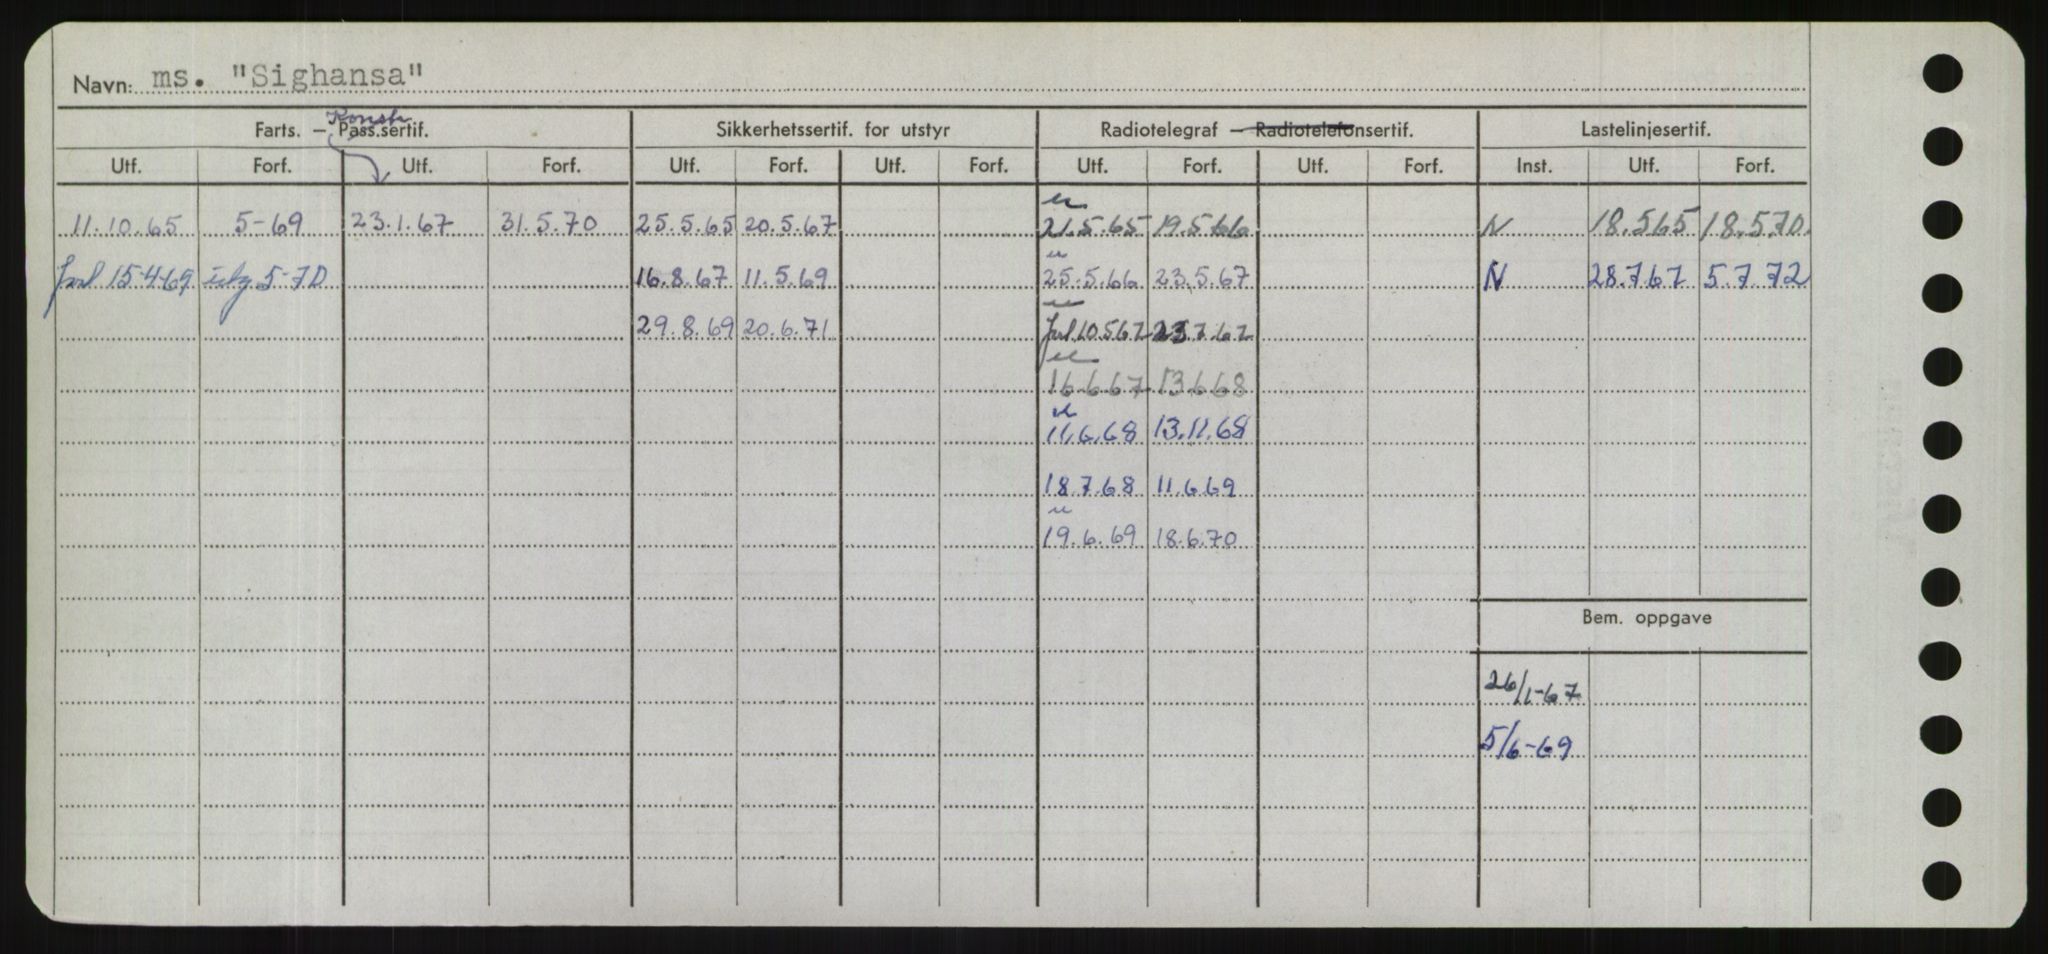 Navn: ms. "Sighansa"
Konstr
Farts. – Pass.sertif. Sikkerhetssertif. for utstyr Radiotelegraf – Radiotelefonsertif. Lastelinjesertif.
Utf. Forf. Utf. Forf. Utf. Forf. Utf. Forf. Utf. Forf. Utf. Forf. Inst. Utf. Forf.
11.10.65 5-69 23.1.67 31.5.70 25.5.65 20.5.67 21.5.65 19.5.66 N 18.5.65 18.5.70.
15-4-69 5-70 16.8.67 11.5.69 25.5.66 23.5.67 N 28.7.67 5.7.72
29.8.69 20.6.71 10.5.67 23.7.67
16.6.67 13.6.68
11.6.68 13.11.68
18.7.68 11.6.69
19.6.69 18.6.70
Bem. oppgave
26/1-67
5/6-69